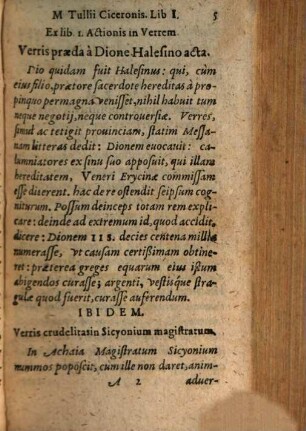 M Tullii Ciceronis. Lib I. 5
Ex lib. 1. Actionis in Verrem
Verris præda à Dione Halesino acta.
Dio quidam fuit Halesinus: qui, cùm
eius filio, prætore sacerdote hereditas à pro-
pinquo permagna venisset, nihil habuit tum
neque negotij, neque controuersiæ. Verres,
simul ac tetigit prouinciam, statim Messa-
na litteras dedit: Dionem euocauit: ca-
lumniatores ex sinu suo apposuit, qui illam
hereditatem, Veneri Erycinæ commissam
esse dicerent. hac de re ostendit seipsum cog-
niturum. Possum deinceps totam rem expli-
care: deinde ad extremum id, quod accidit,
dicere: Dionem IIS. decies centena millia
numerasse, vt causam certißimam obtine-
ret: præterea greges equarum eius ißum
abigendos curasse; argenti, vestisque stra-
gulæ quod fuerit, curasse auferendum.
IBIDEM.
Verris crudelitas in Sicyonium magistratum.
In Achaia Magistratum Sicyonium
nummos poposcit, cum ille non daret, anim-
A 2 aduer-